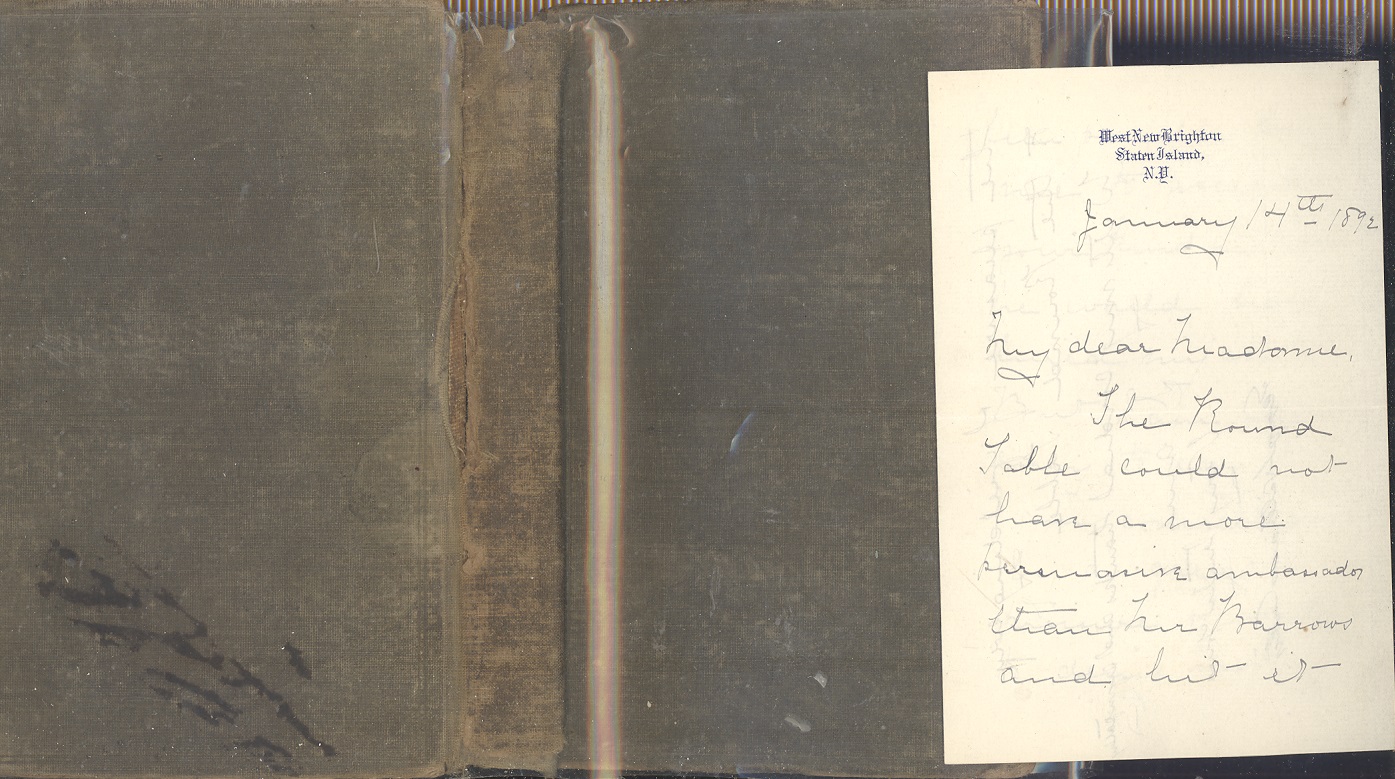 West New Brighton
Staten Island,
N.Y.
January 14th 1892
My dear Madame,
The Round
Table could not
have a more
persuasive ambassador
than Mr Barrows
and but it